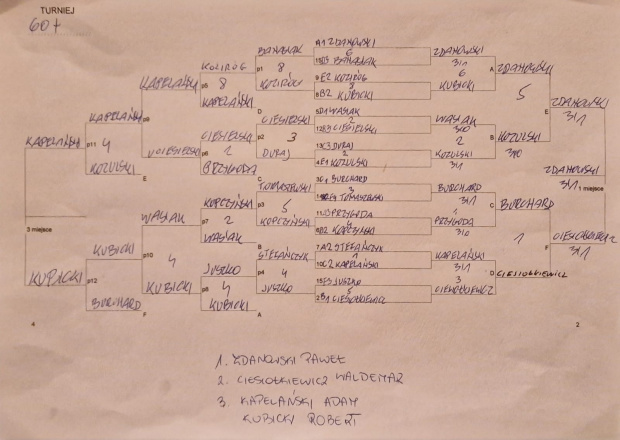 TURNIEJ
60+
A1 ZDANOWSKI
6
BANASIAK
E2 KOZIRÓG
8
B2 KUBICKI
D1 WASIAK
2
CIESIELSKI
DURAJ
2
E1 KOZULSKI
C1 BURCHARD
3
TOMASZEWSKI
PRZYGODA
4
D2 KOPCZYŃSKI
A2 STEFAŃCZYK
1
C2 KAPELAŃSKI
E3 JUSZKO
5
B1 CIESIOŁKIEWICZ
ZDANOWSKI
3/1
6
KUBICKI
WASIAK
3/0
2
KOZULSKI
3/1
BURCHARD
3/1
PRZYGODA
3/0
KAPELAŃSKI
3/1
3
CIESIOŁKIEWICZ
A
ZDANOWSKI
5
B
KOZULSKI
3/0
C
BURCHARD
1
D CIESIOŁKIEWICZ
E
ZDANOWSKI
3/1
F
CIESIOŁKIEWICZ
3/1
ZDANOWSKI
3/1 1 miejsce
2
BANASIAK
p1 8
KOZIRÓG
D
CIESIELSKI
p2 3
DURAJ
C
TOMASZEWSKI
p3 5
KOPCZYŃSKI
B
STEFAŃCZYK
p4 4
JUSZKO
A
KOZIRÓG
p5 8
KAPELAŃSKI
CIESIELSKI
p6 1
PRZYGODA
KOPCZYŃSKI
p7 2
WASIAK
JUSZKO
p8 4
KUBICKI
KAPELAŃSKI
p9
CIESIELSKI
E
WASIAK
p10
4
KUBICKI
F
KAPELAŃSKI
p11 4
KOZULSKI
KUBICKI
p12
BURCHARD
KAPELAŃSKI
3 miejsce
KUBICKI
4
1. ZDANOWSKI PAWEŁ
2. CIESIOŁKIEWICZ WALDEMAR
3. KAPELAŃSKI ADAM
KUBICKI ROBERT